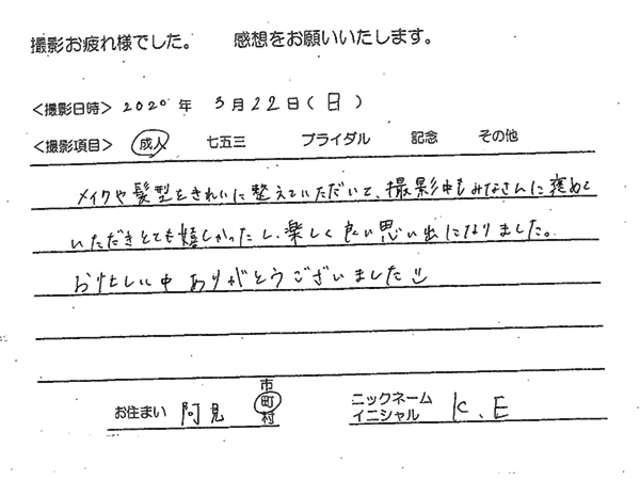 撮影お疲れ様でした。 感想をお願いいたします。
＜撮影日時＞ 2020 年 3月 22日(日)
＜撮影項目＞ 成人 七五三 ブライダル 記念 その他
メイクや髪型をきれいに整えていただいて、撮影中もみなさんに褒めて
いただきとても嬉しかったし、楽しく良い思い出になりました。
お忙しい中 ありがとうございました
お住まい 阿見 市町村 ニックネーム イニシャル K.E